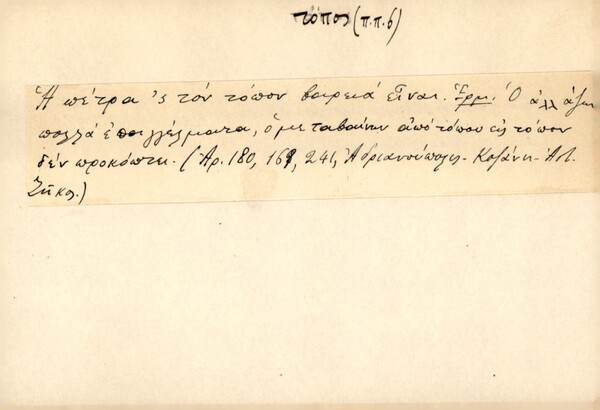 τόπος (π.π.6)
Ἡ πέτρα 'ς τὸν τόπον βαρειά εἶναι. Ἑρμ. Ὁ ἀλλάζων
πολλά ἐπαγγέλματα, ὁ μεταβαίνων ἀπό τόπου εἰς τόπον
δέν προκόπτει. (Ἀρ. 180, 168, 241, Ἀδριανούπολις - Κοζάνη - Ἀστ.
Ζῆκος.)